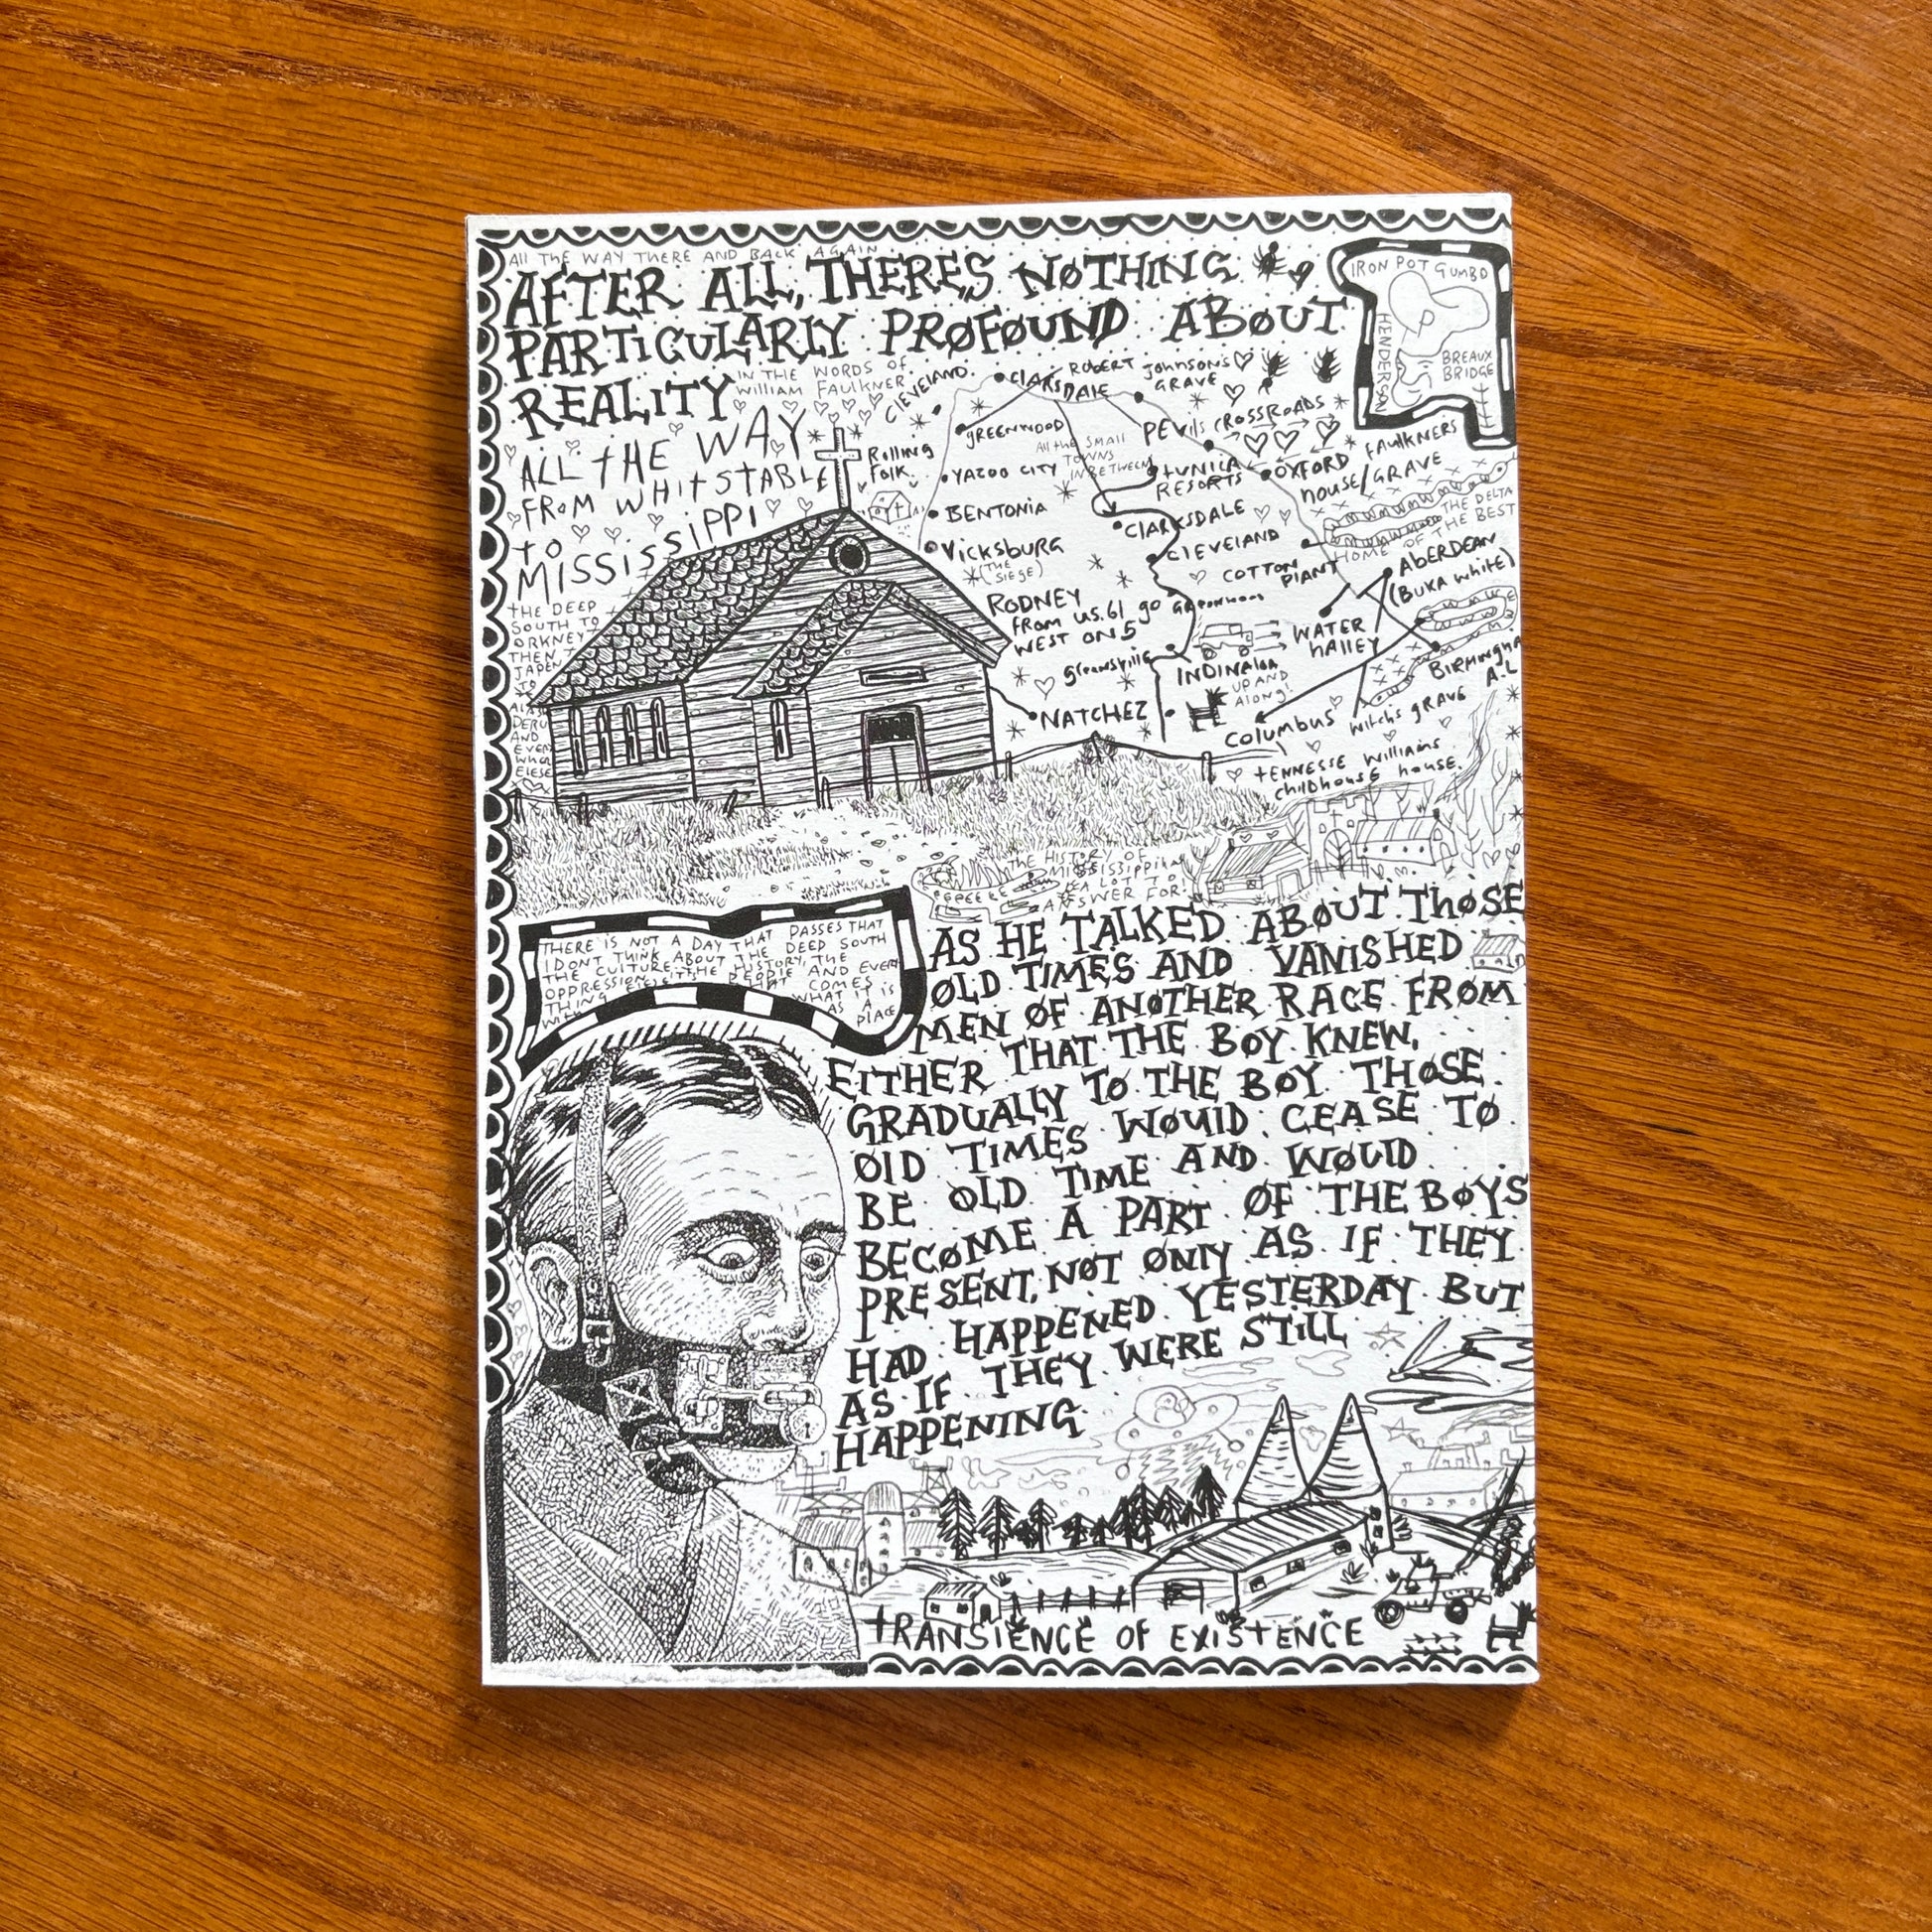 All THE WAY THERE AND BACK AGAIN
AFTER ALL, THERES NOTHING
PARTICULARLY PROFOUND ABOUT
REALITY
IN THE WORDS OF
William FAULKNER.
ALL tHE WAY
FROM WHITSTABLE
to
MISSISSIPPI
tHE DEEP
SOUTH TO
ORKNEY
THEN
AND
EVERY
Rolling
Folk.
CLEVELAND.
CLARKSDALE
ROBERT Johnson's
GRAVE
GREENWOOD
All the SMALL
TOWNS
IN BETWEEN
YAZOO CITY
BENTONIA
VICKSBURG
(THE
SIEGE)
RODNEY
FROM US.61 go
WEST ON 5
NATCHEZ
DEVils CROSSROADS
tUNICA
RESORTS
OXFORD FAUlKNERS
HOUSE/GRAVE
CLARKSDALE
CLEVELAND
COTTON
PLANT
Greenwood
THE DELTA
HOME OF THE BEST
ABERDEAN
(BUKA WHITE)
WATER
VALLEY
INDINALOA
UP AND
Along!
BIRMINGHA
A.L
COlUMBUS
WITCHS GRAVE
tENNESSE Williams
CHILDHOUSE HOUSE.
IRON POT GUMBO
HENDERSON
BREAUX
BRIDGE
THE HISTORY OF
A LOT TO
ANSWER FOR!
THERE IS NOT A DAY THAT PASSES THAT
I DONT THINK ABOUT THE DEEP SOUTH
THE CULTURE, THE HISTORY, THE
OPPRESSION, THE PEOPLE AND EVERY
THING ELSE THAT COMES
WITH WHAT IT IS
AS A
PLACE
AS HE TALKED ABOUT THOSE
OLD TIMES AND VANISHED
MEN OF ANOTHER RACE FROM
EITHER THAT THE BOY KNEW,
GRADUALLY TO THE BOY THOSE
OlD TIMES WOUlD CEASE TO
BE OLD TIME AND WOUlD
BECOME A PART OF THE BOYS
PRESENT, NOT ONlY AS IF THEY
HAD HAPPENED YESTERDAY BUT
AS IF THEY WERE STiLL
HAPPENING
tRANSIENCE OF EXISTENCE